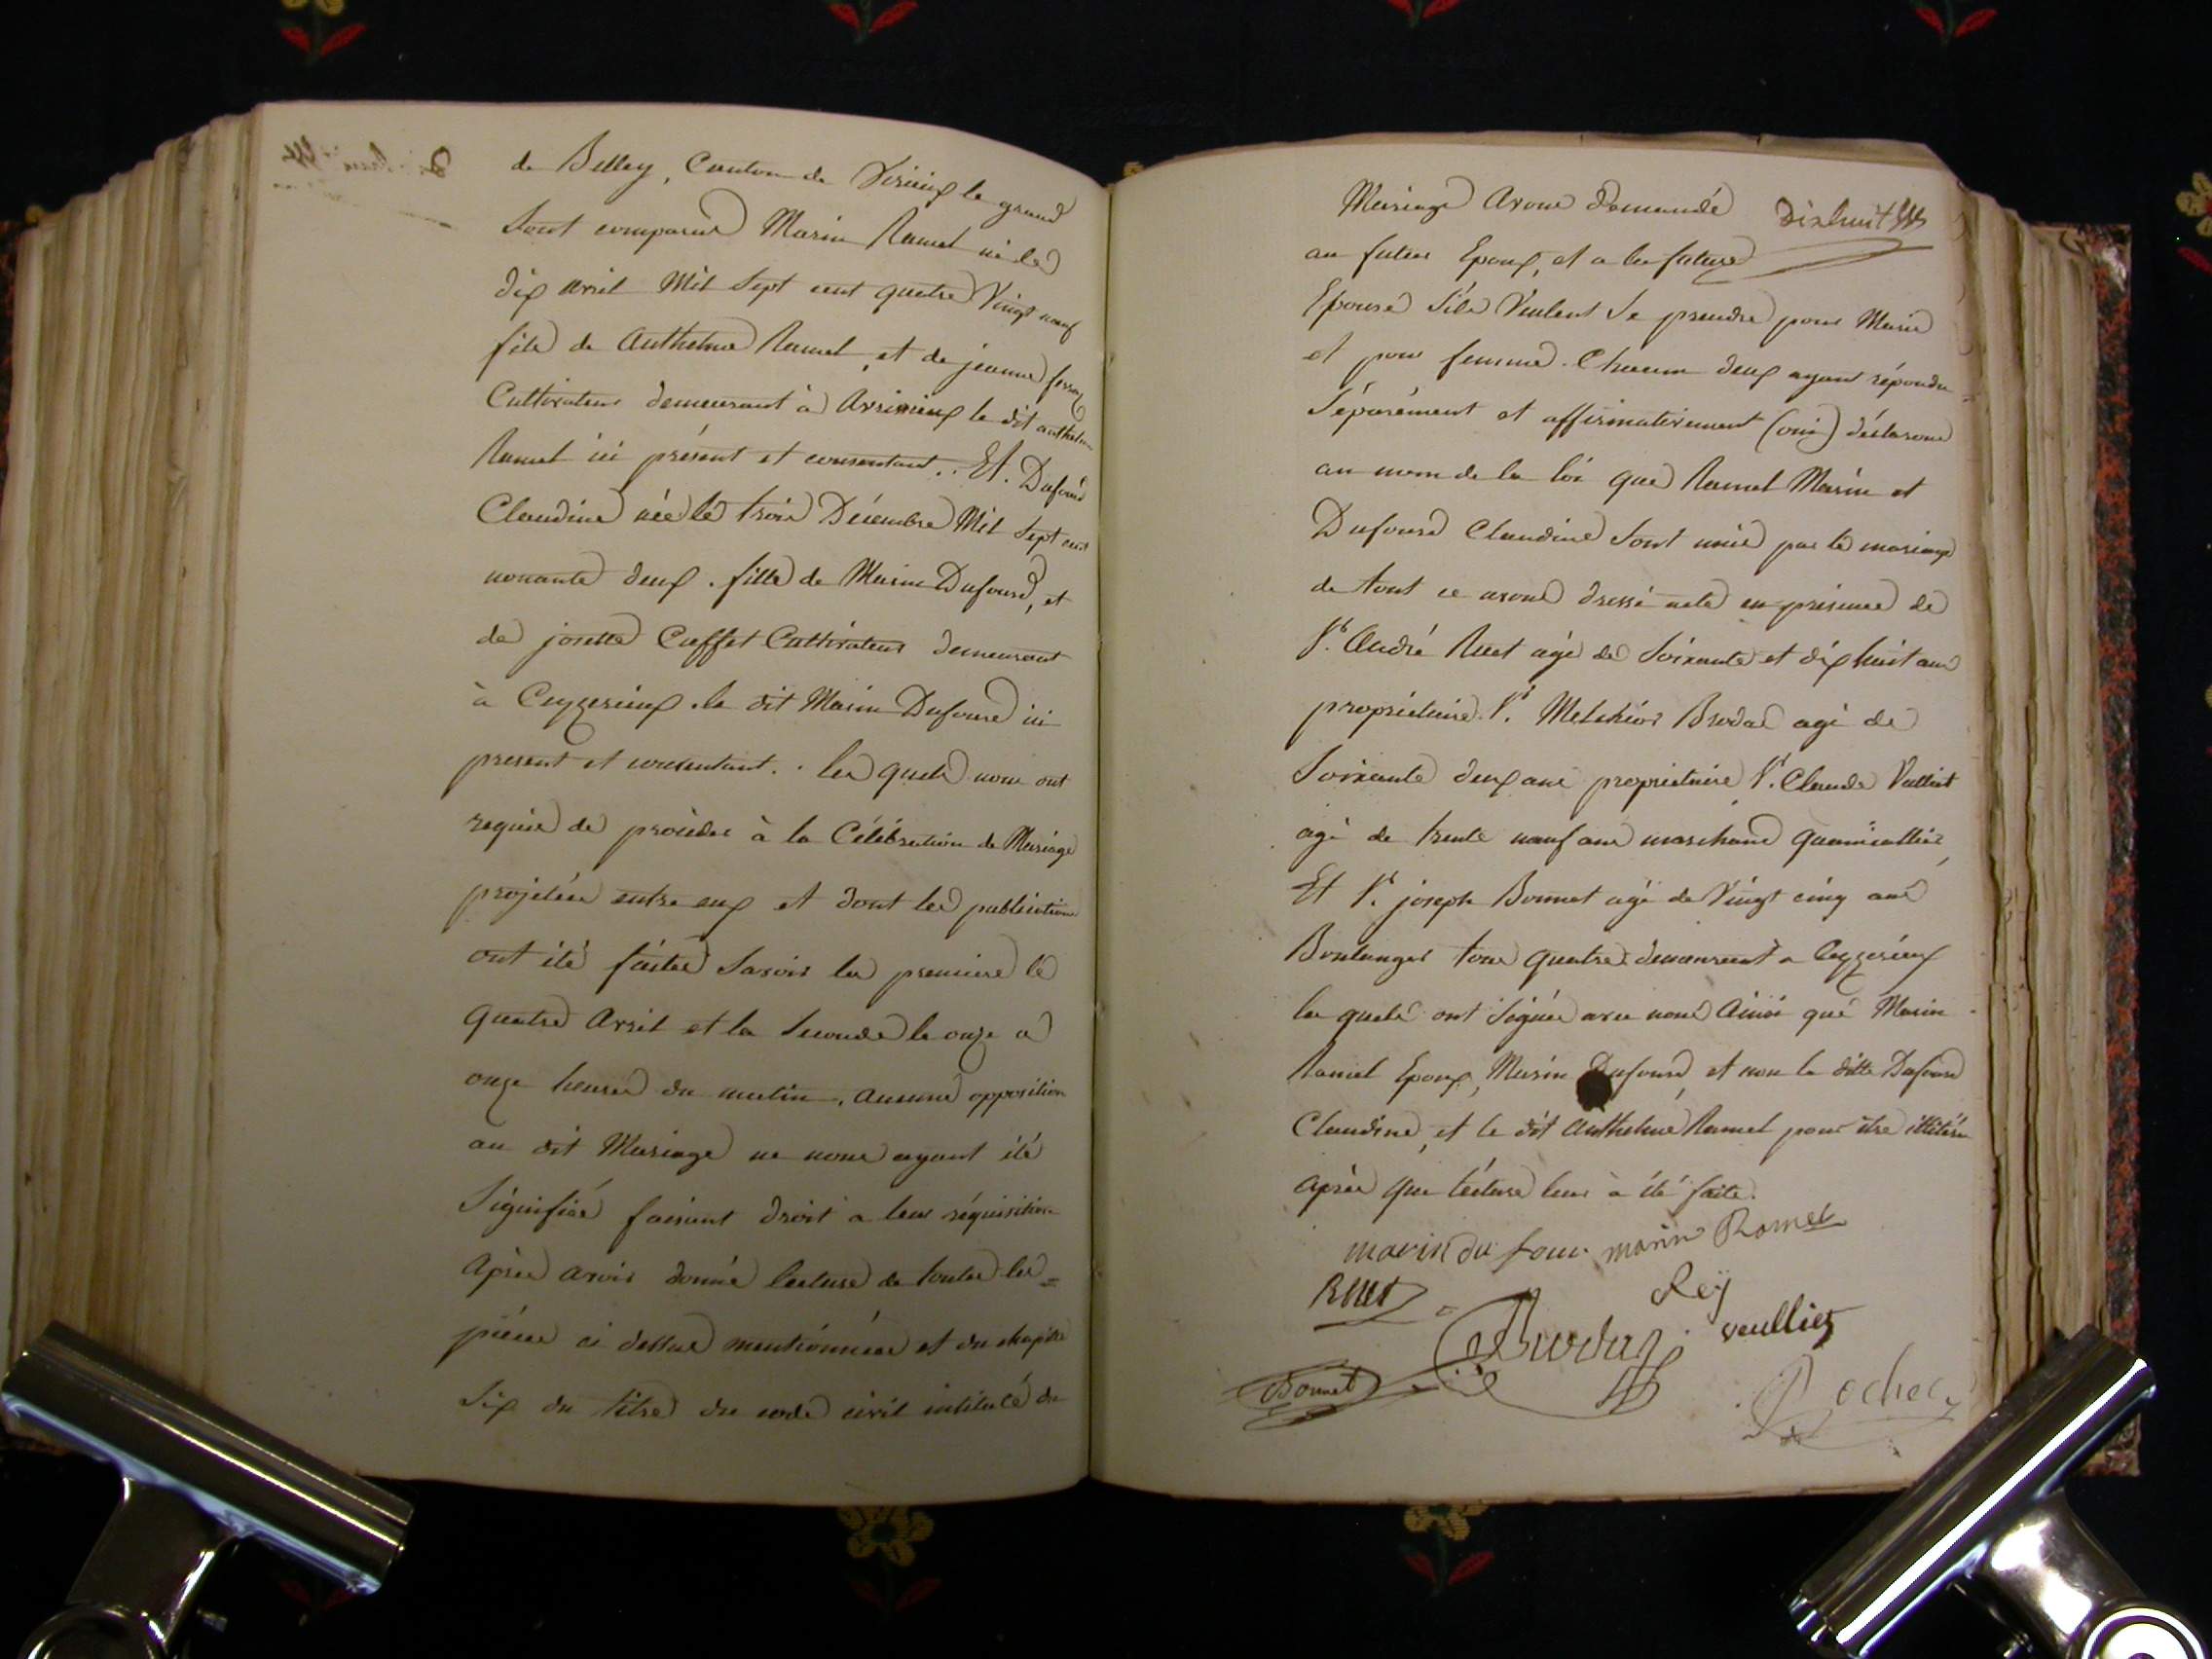 de Belley, Canton de Virieux le grand
Sont comparus Marin Ramel né le
dix avril Mil Sept cent quatre Vingt neuf
fils de Anthelme Ramel, et de jeanne
Cultivateurs demeurant à le dit anthelme
Ramel ici présent et consentant. Et. Dufour
Claudine née le trois Décembre Mil Sept cent
nonante deux. fille de Marin Dufourd, et
de josette Caffet Cultivateurs demeurant
à Ceyzerieux. le dit Marin Dufourd ici
present et consentant. les quels nous ont
requis de procéder à la Célébration de Mariage
projetée entre eux et dont les publications
ont été faites Savoir la premiere le
quatre Avril et la Seconde le onze a
onze heures du matin, aucune opposition
au dit Mariage ne nous ayant été
Signifiée faisant droit a leur réquisition
Après avoir donné lecture de toutes les =
pièces ci dessus mentionnées et du chapitre
Six du titre du code civil intitulé du
Dixhuit
Mariage Avons demandé
au futur Epoux, et a la future
Epouse S'ils Veulent Se prendre pour Marie
et pour femme. Chacun deux ayant répondu =
Séparément et affirmativement (oui) déclarons
au nom de la loi que Ramel Marin et
Dufourd Claudine Sont unis par le mariage
de tout ce avons dressé acte en presence de
Sr. André Ruet agé de Soixante et dix huit ans
propriétaire. Sr. Melchior agé de
Soixante deux ans propriétaire Sr. Claude
agé de trente neuf ans marchand
Et Sr. joseph Bonnet agé de Vingt cinq ans
Boulanger tous quatre demeurant a Ceyzerieux
les quels ont Signés avec nous Ainsi que Marin
Ramel Epoux, Marin Dufourd, et non la ditte Dufourd
Claudine, et le dit Anthelme Ramel pour être illitérés
Après que lecture leur à été faite.
marin du four marin Ramel
Ruet Rey
veulliet
Bonnet Rochet